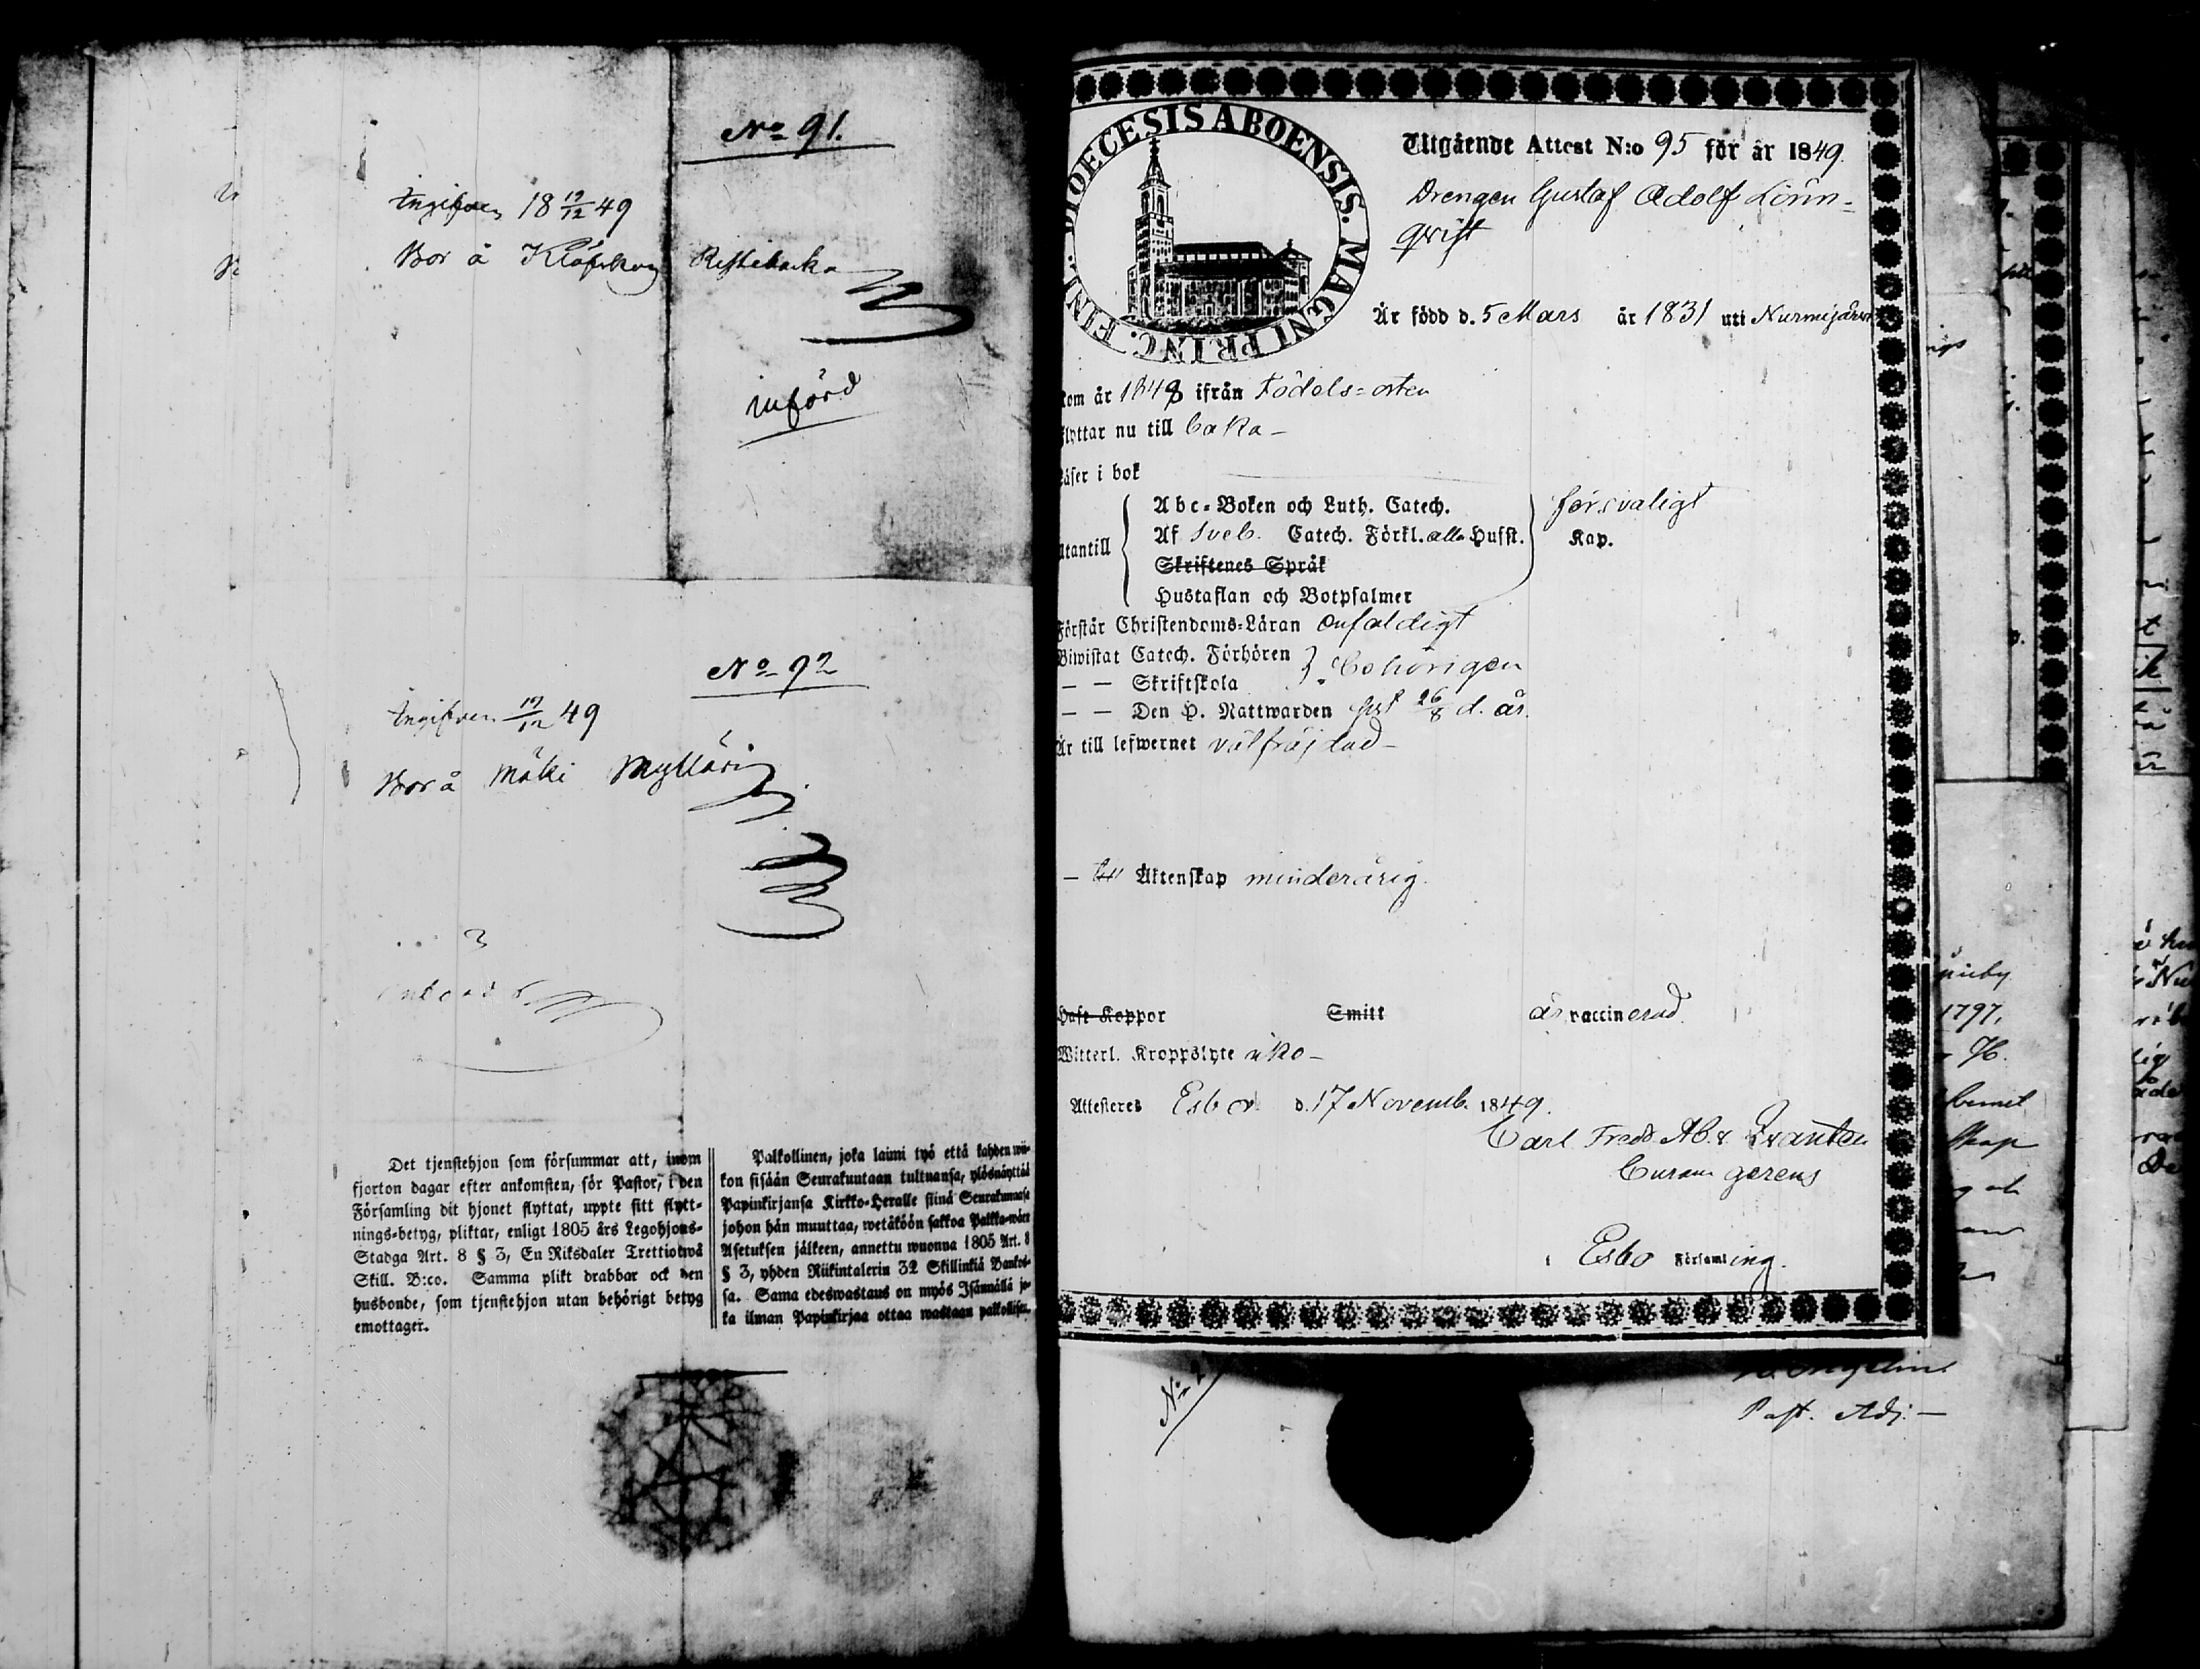 No 91.
Ingifven 18 19/12 49
Bor å Klöfskog Ristibacka
införd
No 92
Ingifven 19/12 49
Bor å Mäki Mylläri
Det tjenstehjon som försummar att, inom
fjorton dagar efter ankomsten, för Pastor, i den
Församling dit hjonet flyttat, uppte sitt flytt-
nings-betyg, pliktar, enligt 1805 års Legohjons-
Stadga Art. 8 § 3, En Riksdaler Trettiotwå
Skill. B:co. Samma plikt drabbar ock den
husbonde, som tjenstehjon utan behörigt betyg
emottager.
Palkollinen, joka laimi lyö että kahden wii-
kon sisään Seurakuntaan tultuansa, ylösnäyttää
Papinkirjansa Kirkko-Herralle siinä Seurakunnasa
johon hän muuttaa, wetäköön sakkoa Palkka-wäen
Asetuksen jälkeen, annettu wuonna 1805 Art. 8
§ 3, yhden Riikintalerin 32 Skillinkiä Bankos-
sa. Sama edeswastaus on myös Isännällä jo-
ka ilman Papinkirjaa ottaa wastaan palkollisen.
DIOECESIS ABOENSIS. MAGNI PRINC. FINL.
Utgående Attest N:o 95 för år 1849.
Drengen Gustaf Adolf Lönn-
qvist
Är född d. 5 Mars år 1831 uti Nurmijärvi
kom år 1848 ifrån Födels-orten
flyttar nu till baka –
Läser i bok
Abc-Boken och Luth. Catech. försvarligt
Utantill Af Sveb. Catech. Förkl. alla Hufst. Kap.
Skriftenes Språk
Hustaflan och Botpsalmer
Förstår Christendoms-Läran enfaldigt
Biwistat Catech. Förhören behörigen
– – Skriftskola
– – Den H. Nattwarden sist 26/8 d. år.
Är till lefwernet välfräjdad –
– till Äktenskap minderårig.
Haft Koppor Smitt är vaccinerad.
Witterl. Kroppslyte icke –
Attesteres Esbo d. 17 Novemb. 1849.
Carl Fredr. Ab. v. Qvanten
Curam gerens
i Esbo Församling.
No 2
Past. Adj. –
1797.